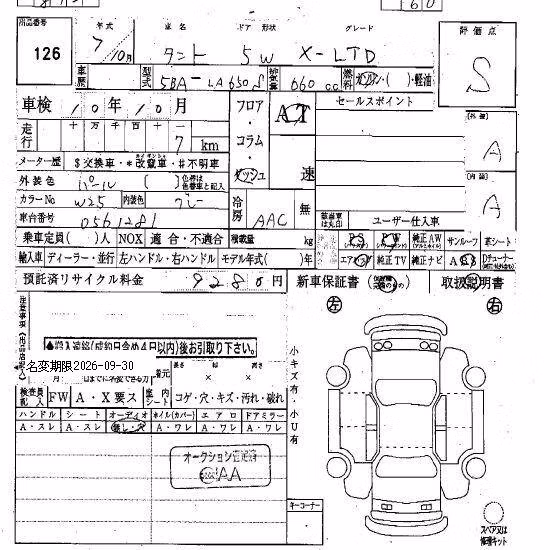 出品番号 年式 車名 ドア 形状 グレード 評価点
126 7/10月 タント 5W X-LTD S
車歴 型式 5BA-LA650S 排気量 660 cc 燃料 ガソリン・( )・軽油
車検 10年10月 フロア・コラム・ダッシュ AT 速 セールスポイント
走行 十万千百十一 7 km
外装 A
メーター歴 $交換車・*改ざん車・#不明車
外装色 パール ( ) 色替は色替車と記入
内装 A
カラーNo W25 内装色 グレー
冷房 AAC 無
車台番号 0561281 ユーザー仕入車
乗車定員( )人 NOX 適合・不適合 積載量 kg PS PW 純正AW サンルーフ 革シート
輸入車 ディーラー・並行 左ハンドル・右ハンドル モデル年式( )年 エアB 純正TV 純正ナビ ABS
預託済リサイクル料金 9280円 新車保証書 取扱説明書
左 右
後お引取り下さい。
名変期限2026-09-30
検査員記入 FW A・X要ス 室内シート コゲ・穴・キズ・汚れ・破れ
ハンドル シート オーディオ ホイル(カバー) エアロ ドアミラー
A・スレ A・スレ 無し・穴 A・ワレ A・ワレ A・ワレ
小キズ有・小U有
オークション
AA
キーコーナー
スペア又は修理キット